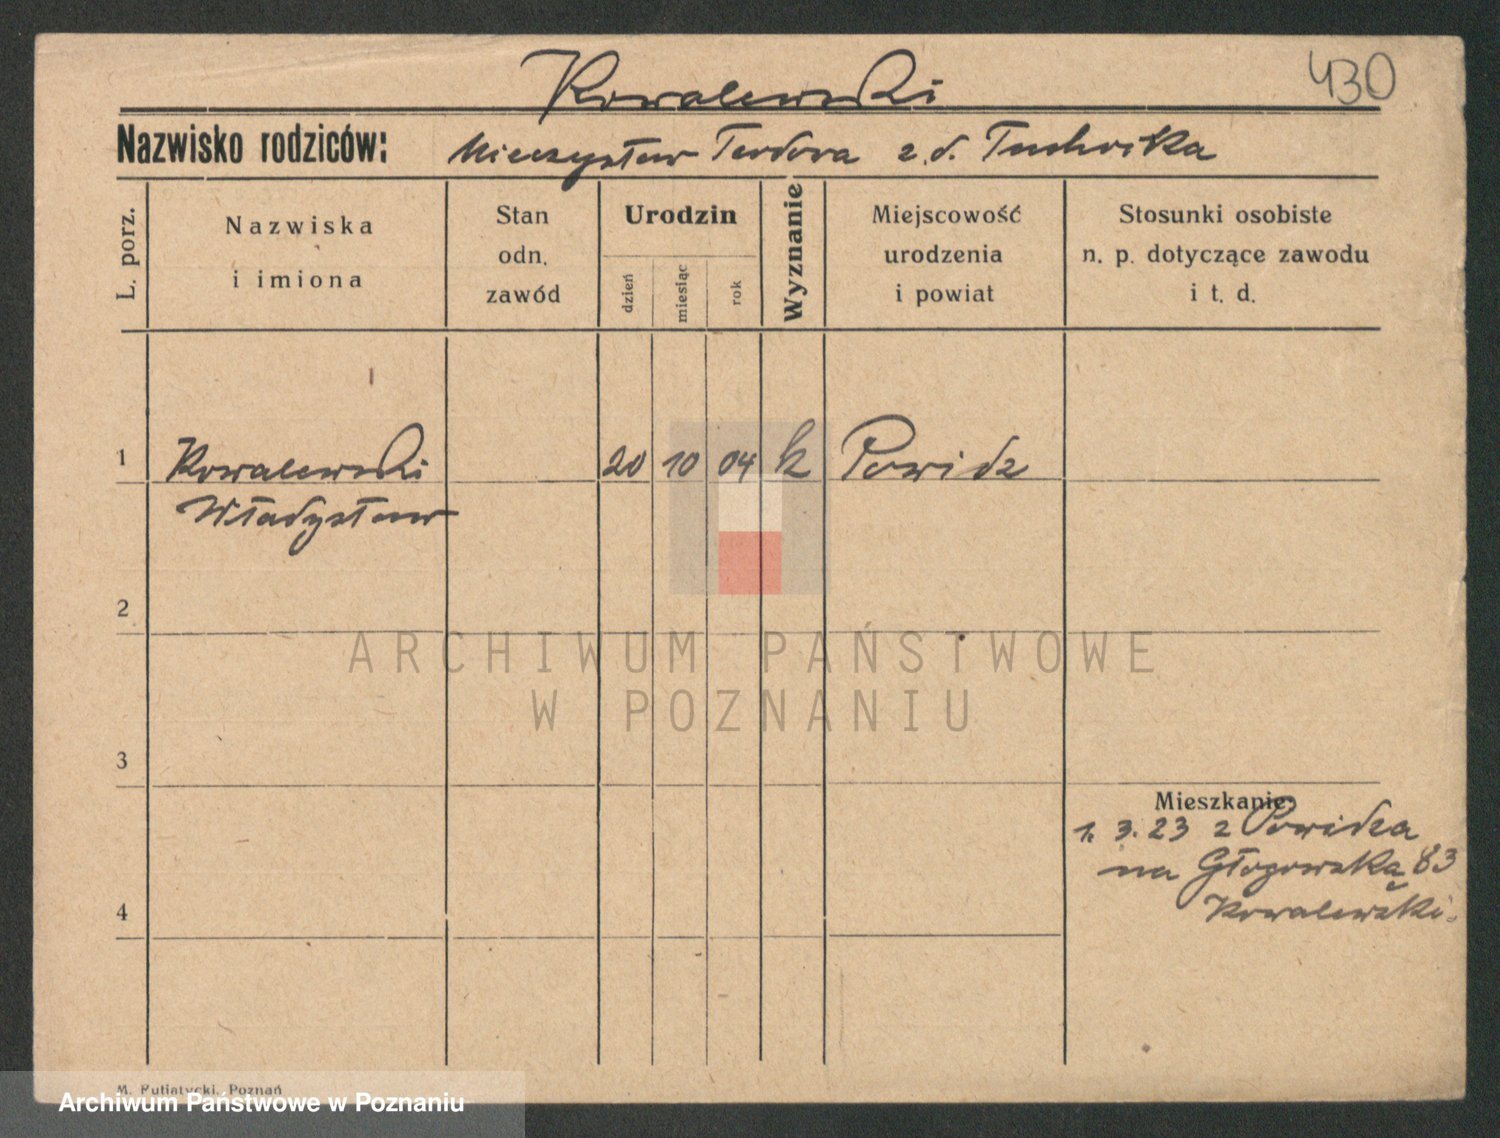 Kowalewski
430
Nazwisko rodziców: Mieczysław Teodora z. d. Tuchocka
L. porz.
Nazwiska
i imiona
Stan
odn.
zawód
Urodzin
dzień
miesiąc
rok
Wyznanie
Miejscowość
urodzenia
i powiat
Stosunki osobiste
n. p. dotyczące zawodu
i t. d.
1 Kowalewski 20 10 04 k Powidz
Władysław
2
ARCHIWUM PAŃSTWOWE
W POZNANIU
3
Mieszkanie:
1. 3. 23 z Powidza
na Głogowską 83
Kowalewski.
4
M. Putiatycki, Poznań
Archiwum Państwowe w Poznaniu